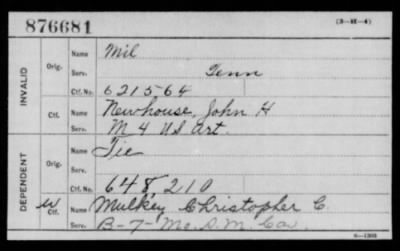 876681 (3-H-4)
INVALID
Orig.
Name Mil
Serv. Tenn
Ctf. No. 621564
Ctf.
Name Newhouse, John H
Serv. M 4 US Art.
DEPENDENT
Orig.
Name Tie
Serv.
Ctf. No. 648,210
W Ctf.
Name Mulkey Christopher C.
Serv. B-7-Mo. S. M. Cav.
6-1308